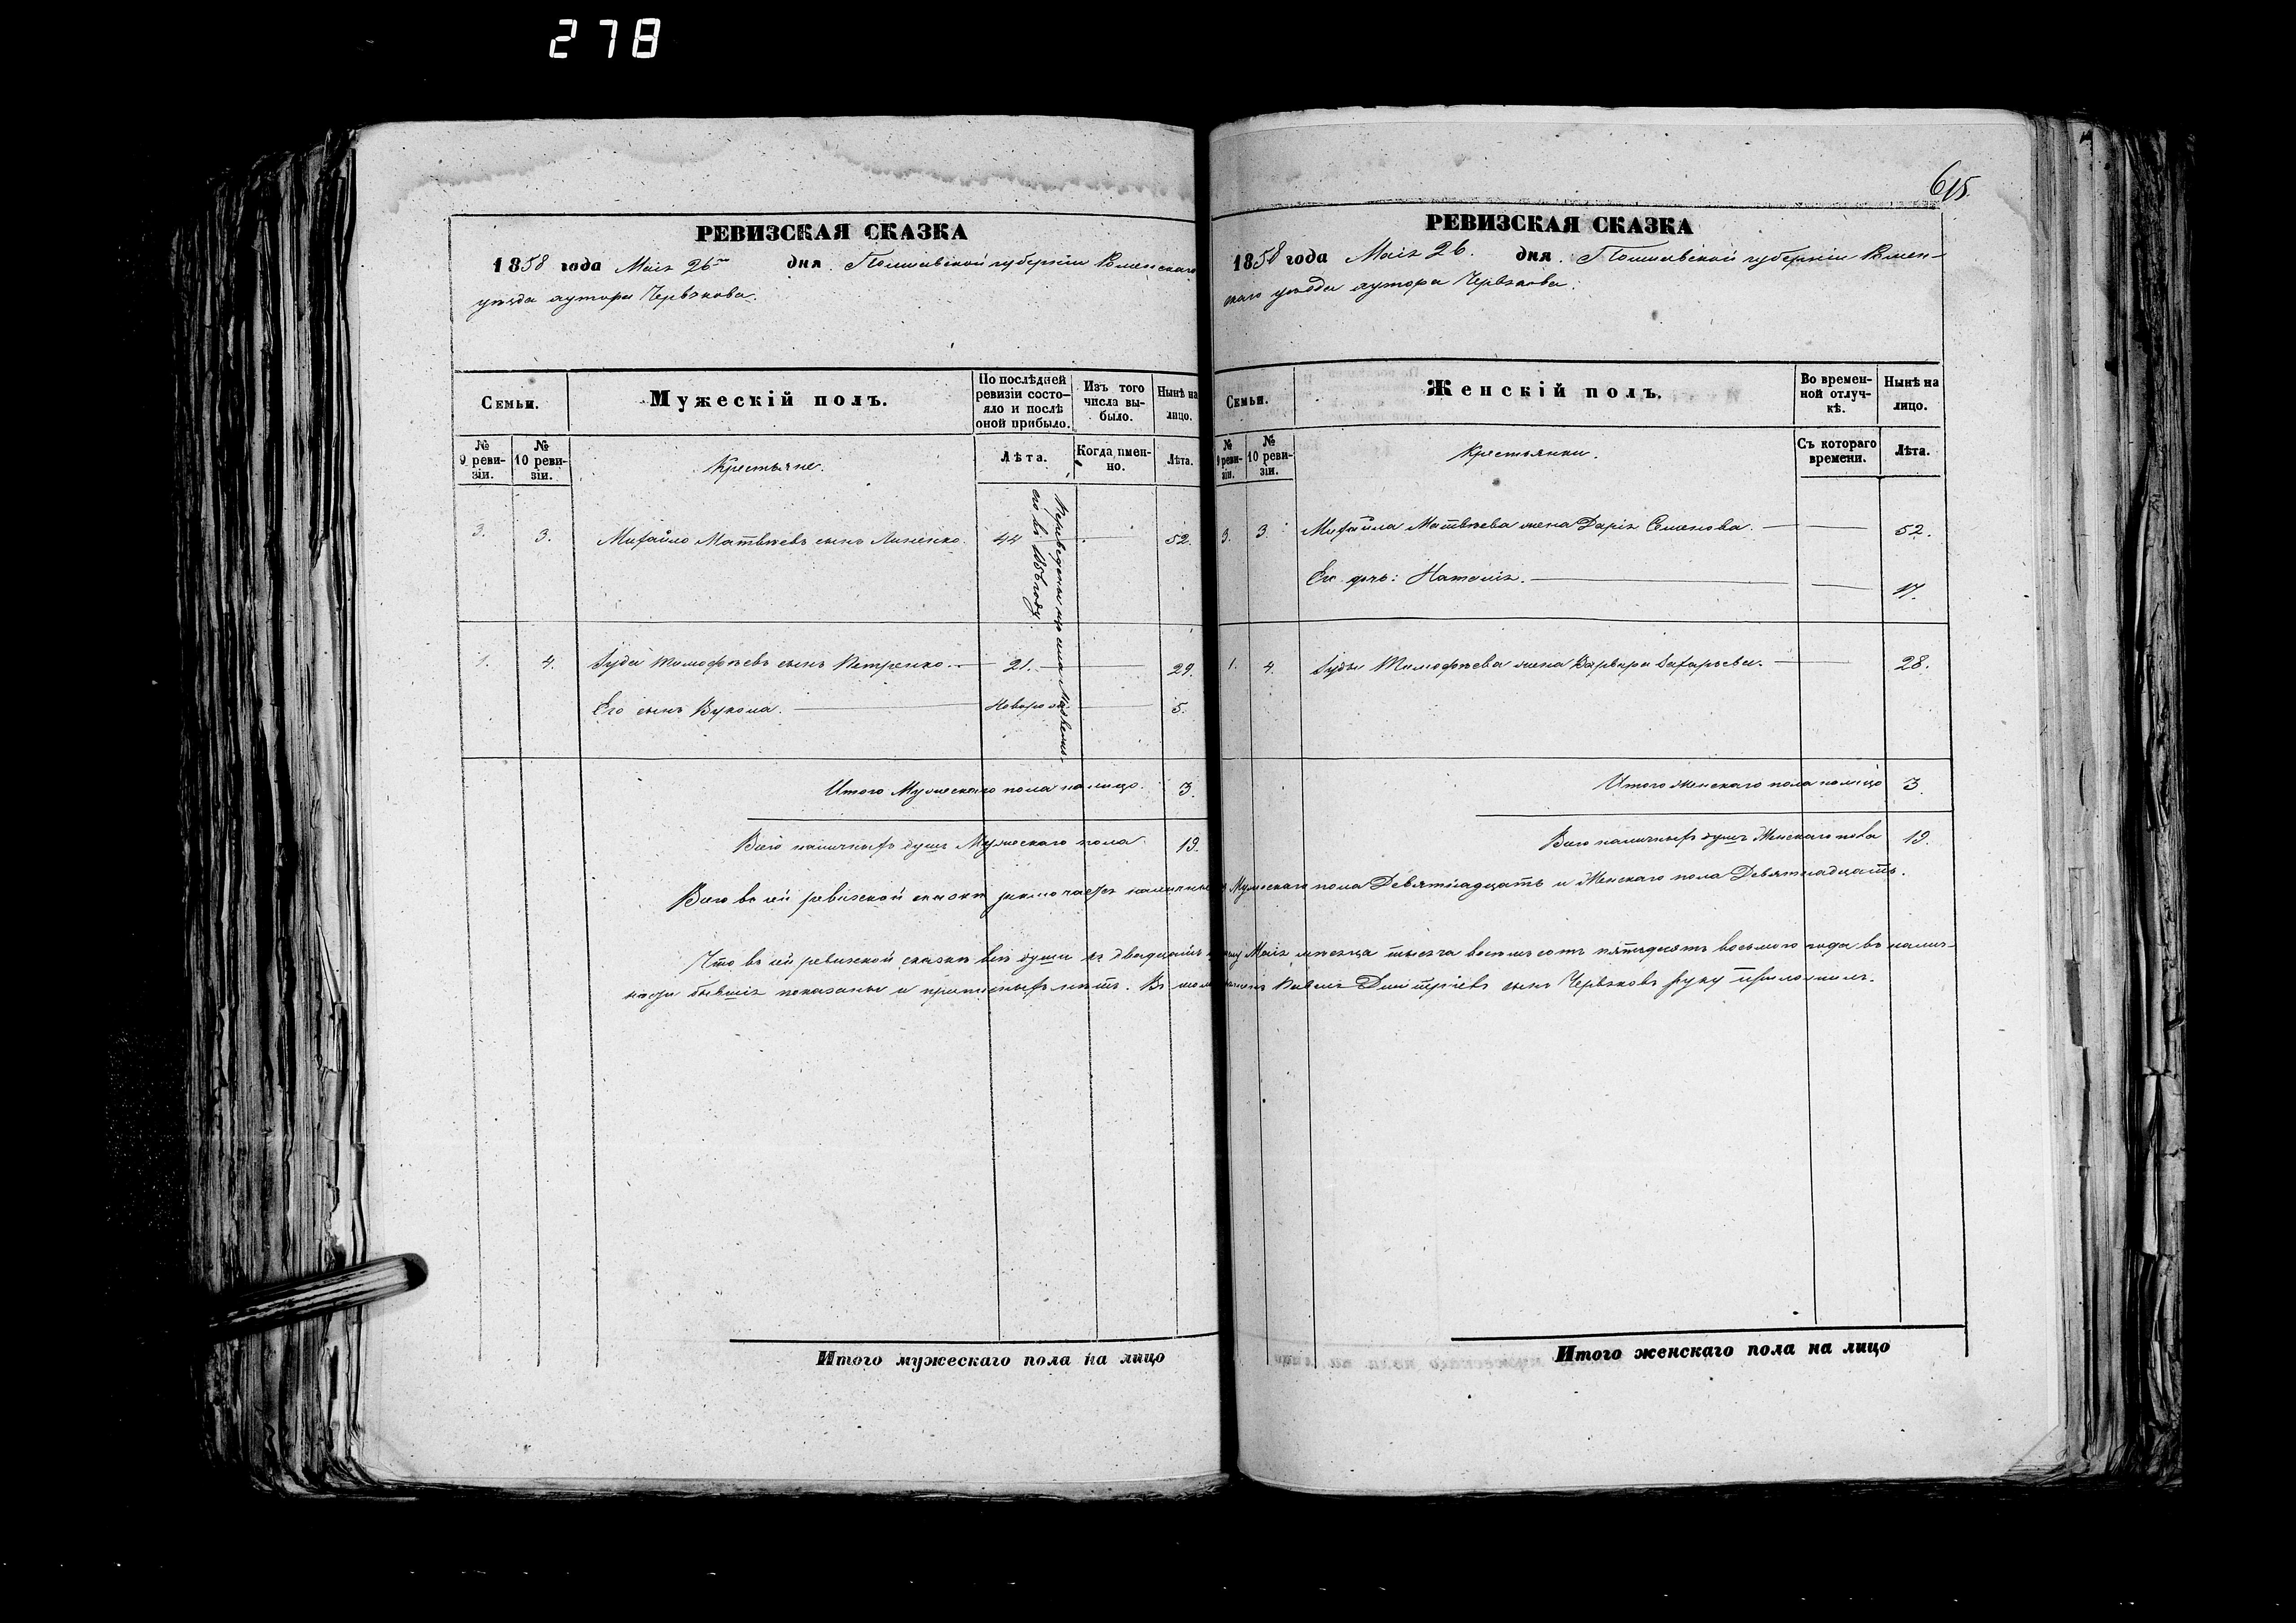 278
615
РЕВИЗСКАЯ СКАЗКА
1858 года Маія 26го дня. Полтавской губерніи Роменскаго
уѣзда хутора Червякова.
Семьи.
Мужескій полъ.
По послѣдней ревизіи состояло и послѣ оной прибыло.
Изъ того числа выбыло.
Нынѣ на лицо.
№ 9 ревизіи.
№ 10 ревизіи.
Крестьяне.
Лѣта.
Когда именно.
Лѣта.
3. 3. Михайло Матвѣевъ сынъ 44 52.
Переведены изъ села
его въ 1856 году.
1. 4. Тимофѣевъ сынъ Петренко. 21. 29.
Его сынъ Вукола. Новорож 5.
Итого Мужескаго пола на лицо. 3.
Всего наличныхъ душъ Мужескаго пола 19.
РЕВИЗСКАЯ СКАЗКА
1858 года Маія 26. дня. Полтавской губерніи Ромен-
скаго уѣзда хутора Червякова.
Семьи.
Женскій полъ.
Во временной отлучкѣ.
Нынѣ на лицо.
№ 9 ревизіи.
№ 10 ревизіи.
Крестьянки.
Съ котораго времени.
Лѣта.
3. 3. Михайла Матвѣева жена Дарія Семенова. 52.
Его дочь: Наталія. 17.
1. 4. Тимофѣева жена Варвара Захарьева. 28.
Итого Женскаго пола на лицо 3.
Всего наличныхъ душъ Женскаго пола 19.
Всего въ сей ревизской сказкѣ заключается наличныхъ Мужескаго пола Девятнадцать и Женскаго пола Девятнадцать.
Что въ сей ревизской сказкѣ всѣ души къ двадцать Маія мѣсяца тысяча восемьсотъ пятьдесятъ восьмого года въ налич-
ности бывшія показаны и прописныхъ нѣтъ. Въ томъ Павелъ Димитріевъ сынъ Червяковъ руку приложилъ.
Итого мужескаго пола на лицо
Итого женскаго пола на лицо